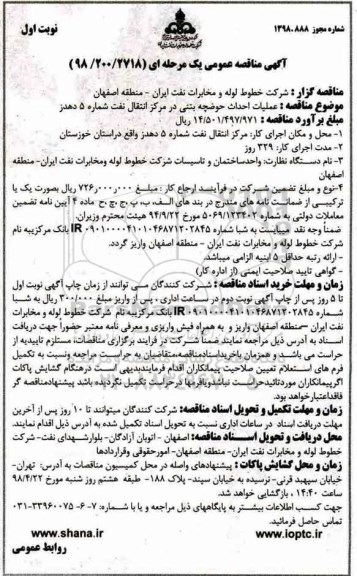 شماره مجوز ۱۳۹۸.۸۸۸
نوبت اول
آگهی مناقصه عمومی یک مرحله ای (۹۸/۲۰۰/۲۷۱۸)
مناقصه گزار: شرکت خطوط لوله و مخابرات نفت ایران - منطقه اصفهان
موضوع مناقصه: عملیات احداث حوضچه بتنی در مرکز انتقال نفت شماره ۵ دهدز
مبلغ برآورده مناقصه: ۱۴/۵۰۱/۴۹۷/۹۷۱ ریال
۱- محل و مکان اجرای کار: مرکز انتقال نفت شماره ۵ دهدز واقع دراستان خوزستان
۲- مدت اجرای کار: ۳۲۹ روز
۳- نام دستگاه نظارت: واحدساختمان و تاسیسات شرکت خطوط لوله ومخابرات نفت ایران- منطقه اصفهان
۴-نوع و مبلغ تضمین شرکت در فرآیند ارجاع کار: مبلغ ۷۲۶٫۰۰۰٫۰۰۰ ریال بصورت یک یا
ترکیبی از ضمانت نامه های مندرج در بند های الف، ب، پ، ج، چ، ح ماده ۴ آیین نامه تضمین
معاملات دولتی به شماره ۵۰۶۹/۱۲۳۴۰۲ مورخ ۹۴/۹/۲۲ هیئت محترم وزیران.
ضمناً وجه نقد میبایست به شبا شماره IR ۰۹۰۱۰۰۰۰۴۱۰۱۰۴۶۸۷۱۲۰۲۸۴۵ بانک مرکزیبه نام
شرکت خطوط لوله و مخابرات نفت ایران - منطقه اصفهان واریز گردد.
- ارائه رتبه حداقل ۵ ابنیه الزامی میباشد.
- گواهی تایید صلاحیت ایمنی (از اداره کار)
زمان و مهلت خرید اسناد مناقصه: شرکت کنندگان می توانند از زمان چاپ آگهی نوبت اول
تا ۵ روز پس از چاپ آگهی نوبت دوم در ساعات اداری، پس از واریز مبلغ ۳۰۰٫۰۰۰ ریال به شبا
شماره IR ۰۹۰۱۰۰۰۰۴۱۰۱۰۴۶۸۷۱۲۰۲۸۴۵ بانک مرکزیبه نام شرکت خطوط لوله و مخابرات
نفت ایران -منطقه اصفهان واریز و به همراه فیش واریزی و معرفی نامه معتبر حضوراً جهت دریافت
اسناد به آدرس ذیل مراجعه نمایند.ضمناً شرکت در فرایند برگزاری مناقصات، مستلزم تاییدیه از
حراست می باشد و همزمان باخریداسنادمناقصه،متقاضیان به حراست مراجعه ونسبت به تکمیل
فرم های استعلام تعیین صلاحیت پیمانکاران اقدام فرمایندبدیهی است درهنگام گشایش پاکات
اگرپیمانکاران موردتائیدحراست نباشدویافرمها درحراست تکمیل نگردیده باشد پیشنهادمناقصه گر
فاقداعتبارخواهد بود.
زمان و مهلت تکمیل و تحویل اسناد مناقصه: شرکت کنندگان میتوانند تا ۱۰ روز پس از آخرین
مهلت دریافت اسناد در ساعات اداری نسبت به تحویل اسناد تکمیل شده به آدرس ذیل اقدام نمایند.
محل دریافت و تحویل اسناد مناقصه: اصفهان - اتوبان آزادگان- بلوارشهدای نفت- شرکت
خطوط لوله و مخابرات نفت ایران- منطقه اصفهان- امورحقوقی وقراردادها
زمان و محل گشایش پاکات: پیشنهادهای واصله در محل کمیسیون مناقصات به آدرس: تهران-
خیابان سپهبد قرنی-نرسیده به خیابان سپند- پلاک ۱۸۸- طبقه هشتم روز شنبه مورخ ۹۸/۴/۲۲
ساعت ۱۴:۴۰ ، بازگشایی خواهد شد.
جهت کسب اطلاعات بیشتر به پایگاههای ذیل مراجعه و یا با شماره: ۷- ۳۳۹۶۰۰۷۵-۰۳۱
تماس حاصل فرمائید.
www.shana.ir www.ioptc.ir
روابط عمومی